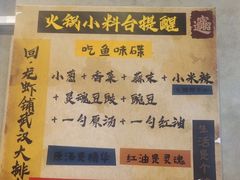 火锅小料台提醒
吃鱼味碟
小葱+香菜+蒜末+小米辣
+灵魂豆豉+豌豆
+一勺原汤+一勺红油
原汤是精华
红油是灵魂
回·龙虾铺武汉大排
生活是